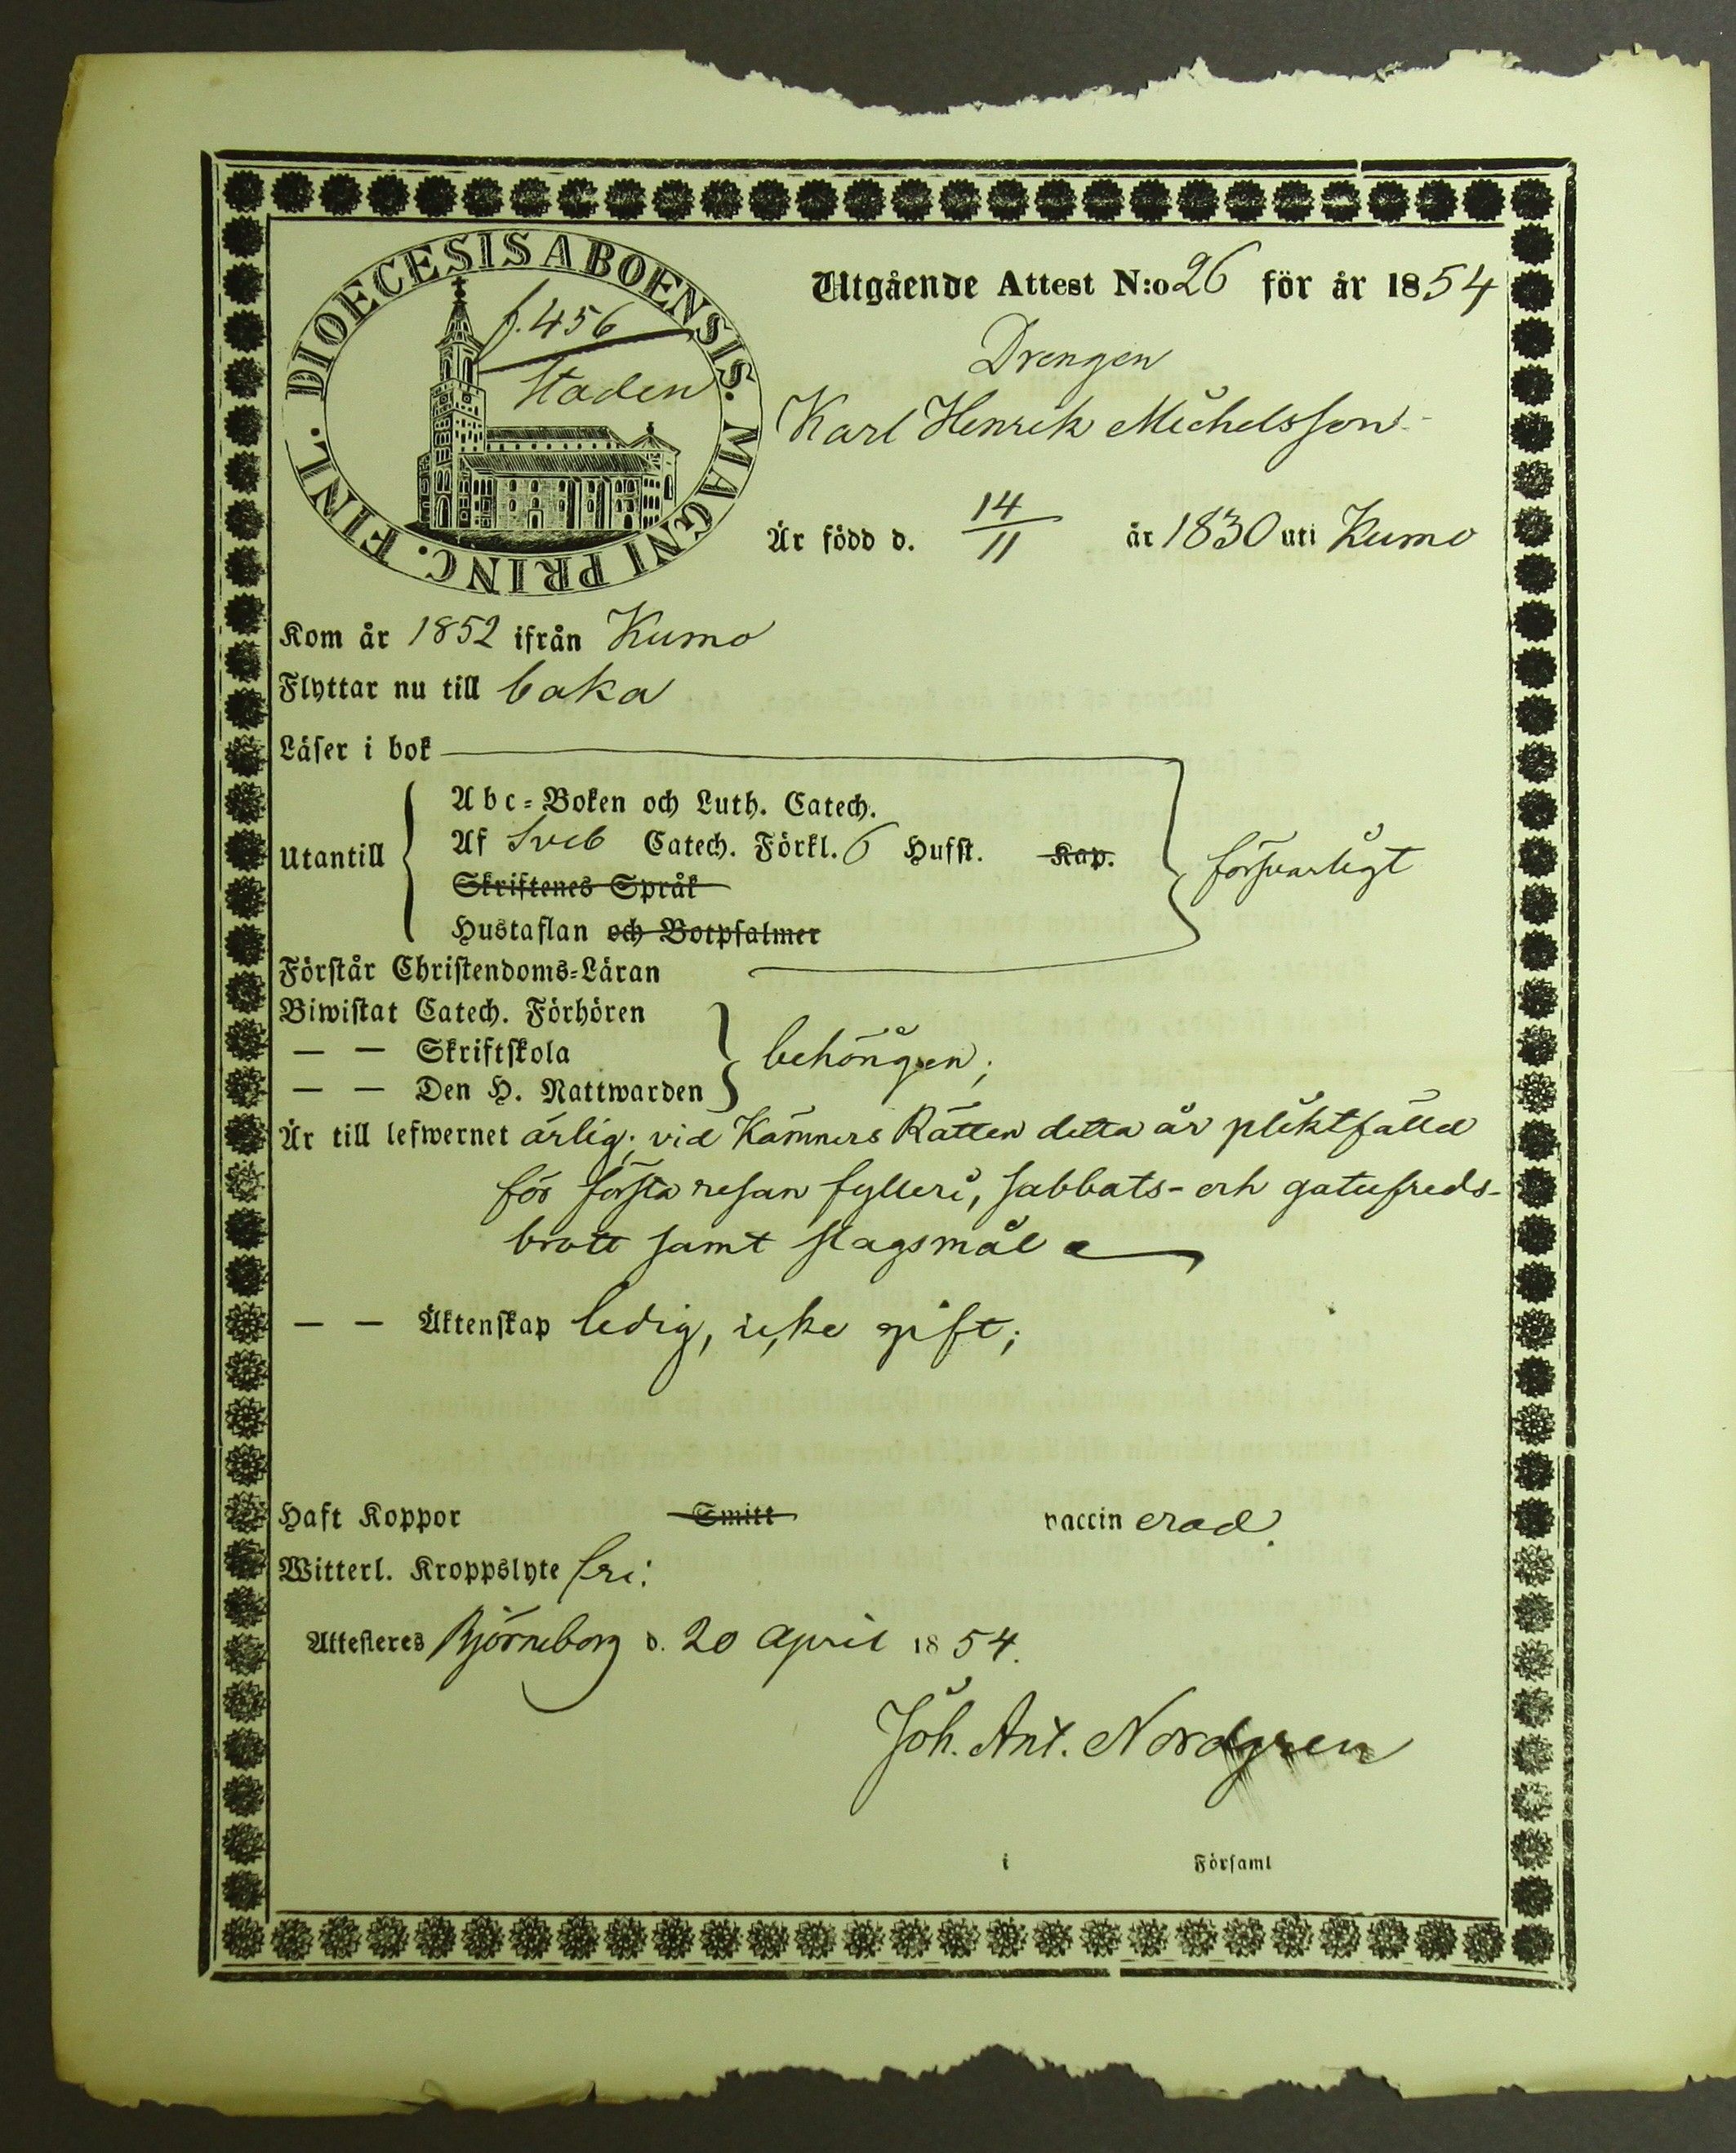 DIOECESIS ABOENSIS. MAGNI PRINC. FINL.
f. 456
Staden
Utgående Attest N:o 26 för år 1854
Drengen
Karl Henrik Michelsson
Är född d. 14/11 år 1830 uti Kumo
Kom år 1852 ifrån Kumo
Flyttar nu till baka
Läser i bok
Utantill
Abc-Boken och Luth. Catech.
Af Sveb Catech. Förkl. 6 Hufst. Kap.
Skriftenes Språk
Hustaflan och Botpsalmer
försvarligt
Förstår Christendoms-Läran
Biwistat Catech. Förhören
— — Skriftskola
— — Den H. Nattwarden
behörigen;
Är till lefwernet ärlig; vid Kämners Rätten detta år pliktfälld
för första resan fylleri, sabbats- och gatufreds-
brott samt slagsmål
— — Äktenskap ledig, icke gift;
Haft Koppor Smitt vaccinerad.
Witterl. Kroppslyte fri:
Attesteres Björneborg d. 20 April 1854.
Joh. Ant. Nordgren
i Församl